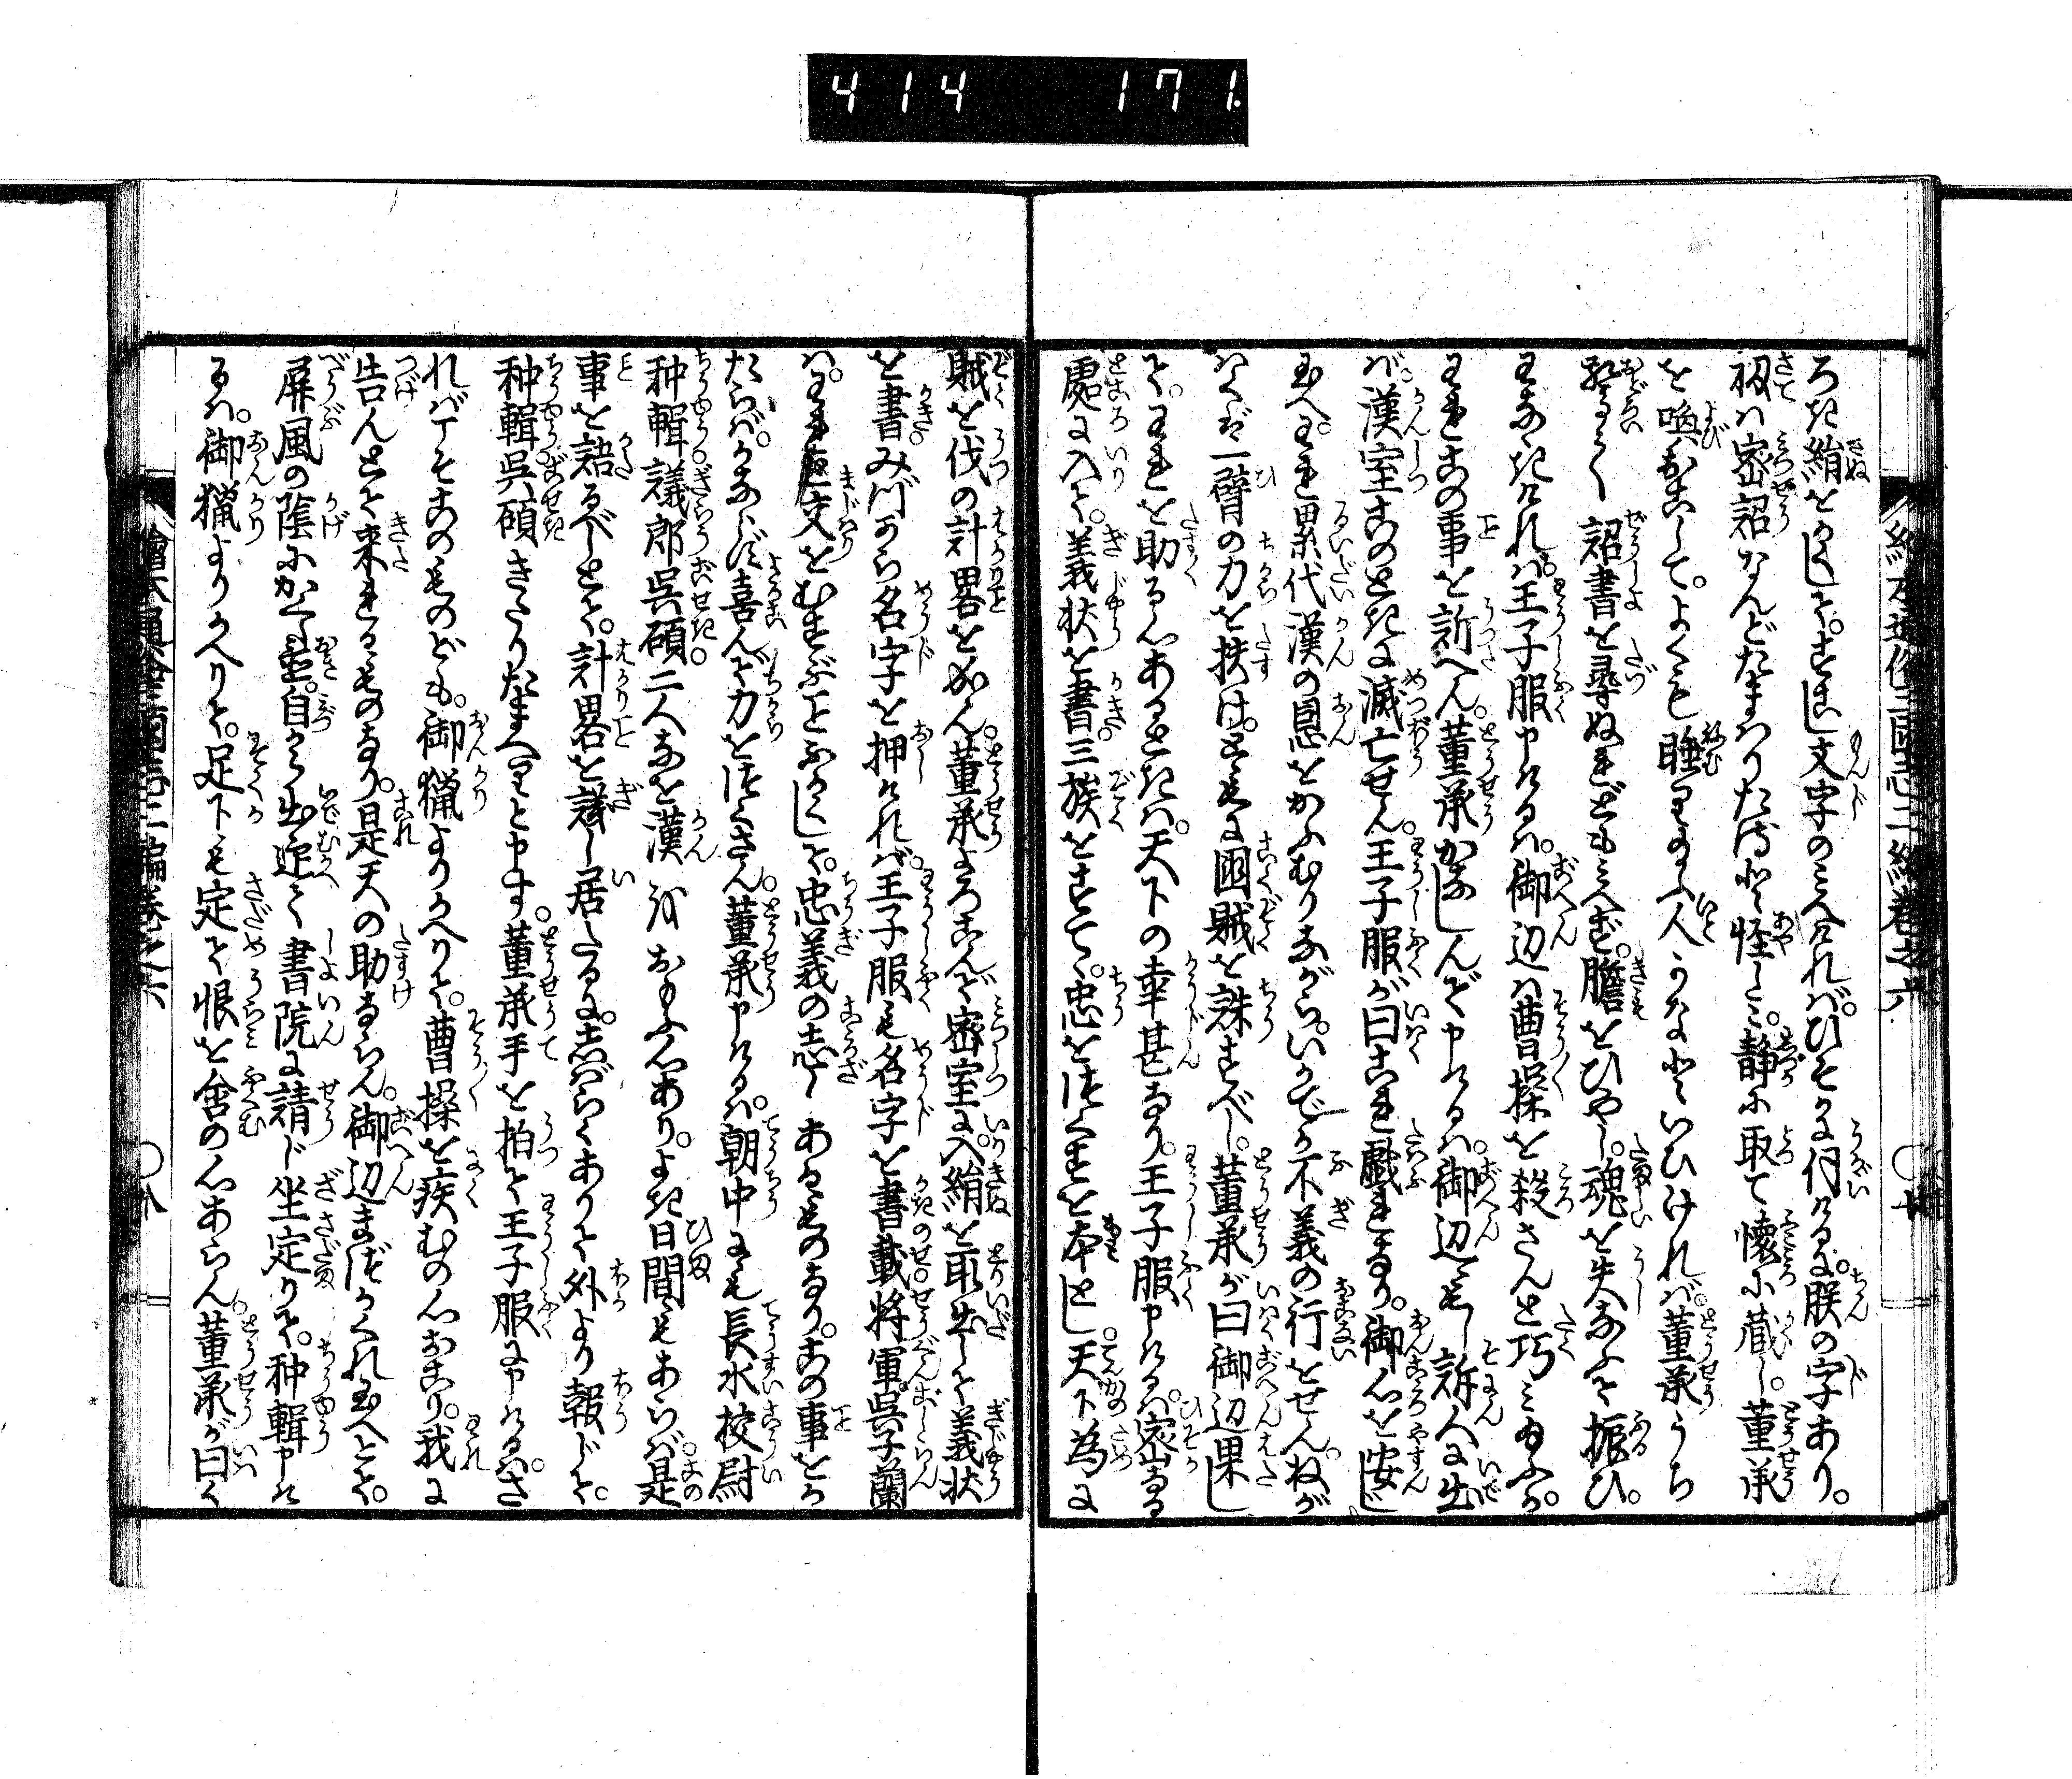 414 171.
繪本通俗三國志二編卷之六
ろき絹をかくして。すこし文字のミへけれバ。ひそかに伺けるに。朕の字あり。
扨ハ密詔なんどたまハりたる也と怪しミ。静に取て懐に蔵し。董承
を喚おこして。よくも睡り玉ふ人かなといひけれバ董承うち
驚く詔書を尋ぬれどもミへず。膽をひやし。魂を失なふて振ひ
わなゝきけれバ。王子服申けるハ。御辺ハ曹操を殺さんと巧ミ玉ふか。
われこの事を訴へん。董承かなしんで申けるハ。御辺もし訴人に出
バ漢室このときに滅亡せん。王子服が曰これ戯れなり。御心を安じ
玉へ。われ累代漢の恩をかふむりながら。いかでか不義の行をせん。ねが
ハくバ一臂の力を扶け。ともに國賊を誅すべし。董承が曰御辺果し
て。われを助る心あるときハ。天下の幸甚なり。王子服申けるハ。密なる
處に入て。義状を書。三族をすてゝ。忠をつくすを本とし。天下為に
賊を伐の計畧をめん。董承よろこんで密室に入。絹を取出して義状
を書。みづから名字を押けれバ。王子服も名字を書載将軍呉子蘭
ハ。われ交をむすぶことふかくして。忠義の志しあるものなり。この事をか
たらバ。かならず喜んで力をつくさん。董承申けるハ。朝中にも長水校尉
种輯議郎呉碩二人なを漢をおもふ心あり。よき日間もあらバ。是
事を語るべしとて。計畧を議し居たるに。志バらくありて外より報じて。
种輯呉碩きたりたまへりと申す。董承手を拍て王子服に申けるハ。さ
れバこそこのものども。御猟よりかへりて。曹操を疾むの心おこり。我に
告んとて来れるものなり。是天の助ならん。御辺まづかくれ玉へとて。
屏風の陰にかくし置。自から出迎て書院に請じ坐定りて。种輯申け
るハ。御猟よりかへりて。足下も定て恨を含の心あらん。董承が曰く
繪本通俗三國志二編卷之六